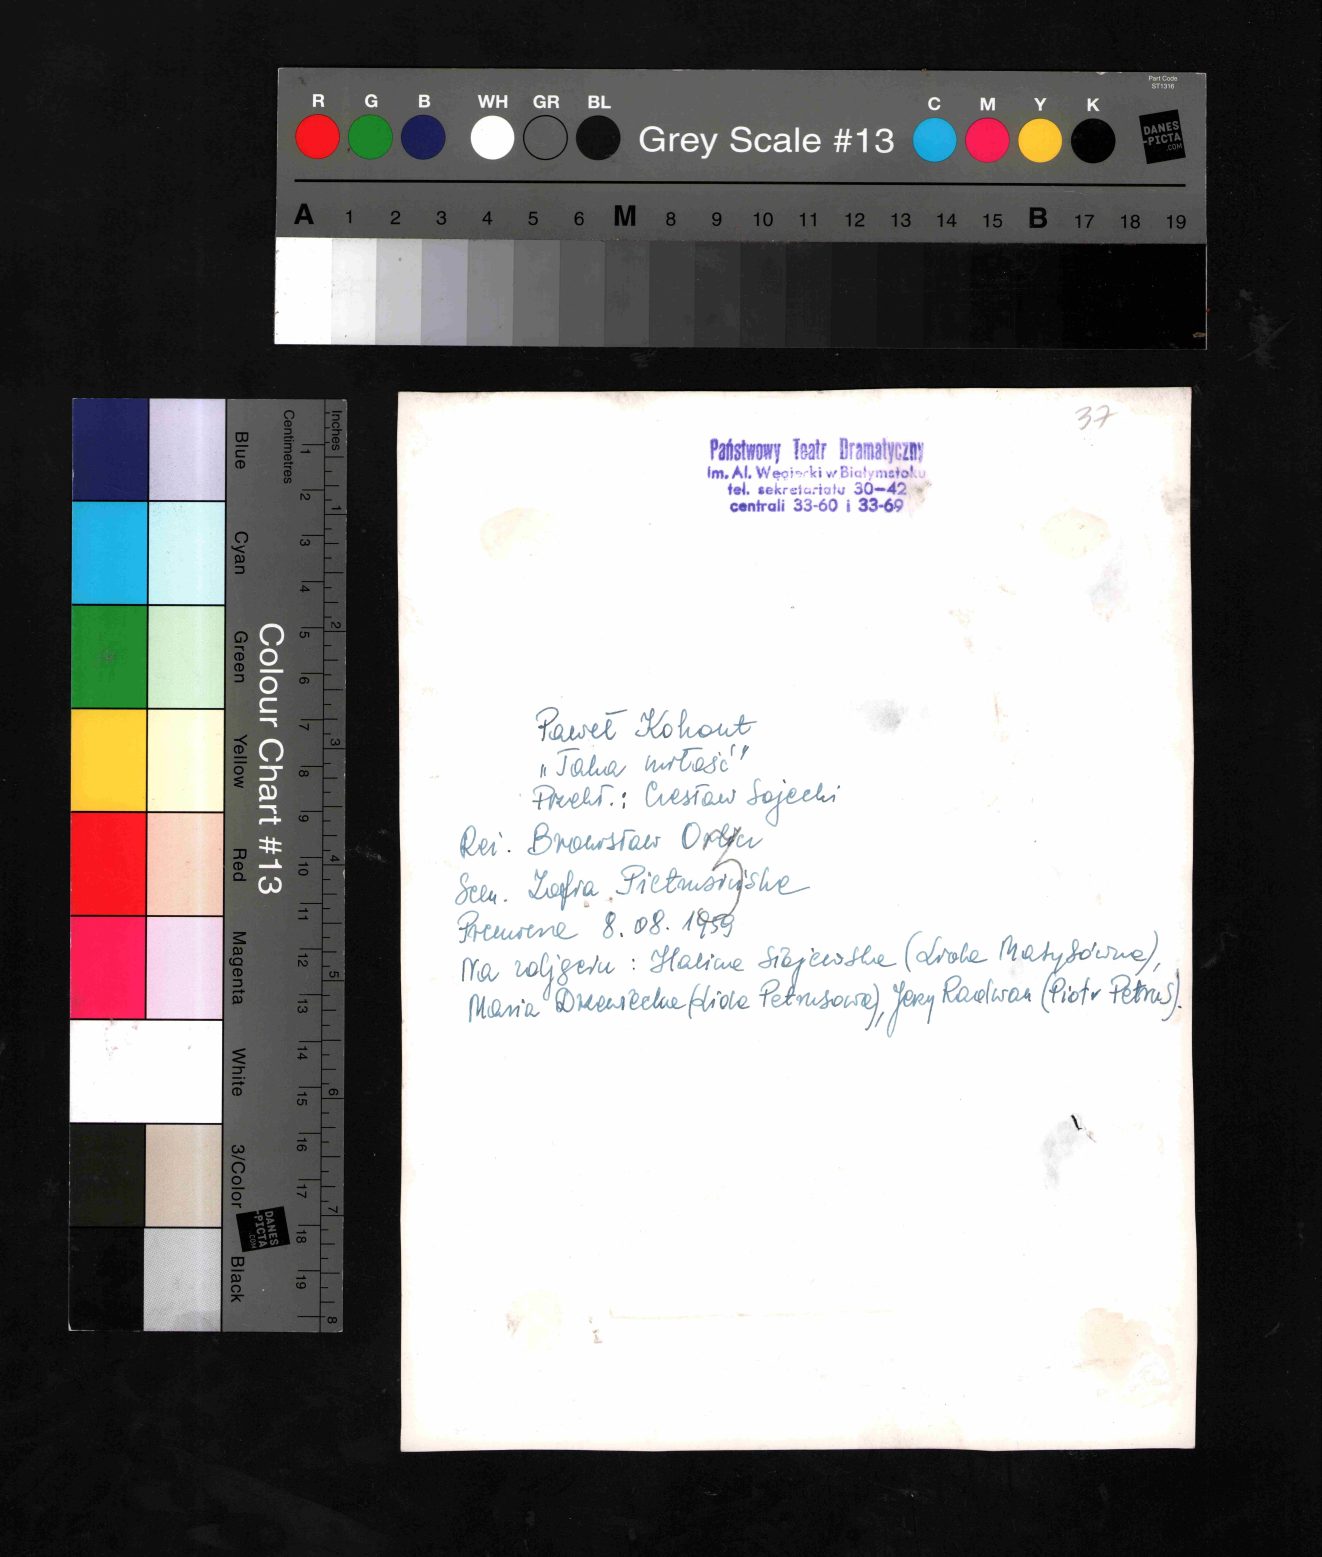 Part Code
ST1316
R G B WH GR BL Grey Scale #13 C M Y K
DANES
-PICTA
.COM
A 1 2 3 4 5 6 M 8 9 10 11 12 13 14 15 B 17 18 19
Inches
Centimetres
1 2 3 4 5 6 7 8
1 2 3 4 5 6 7 8 9 10 11 12 13 14 15 16 17 18 19
Colour Chart #13
Blue
Cyan
Green
Yellow
Red
Magenta
White
3/Color
Black
DANES
-PICTA
.COM
37
Państwowy Teatr Dramatyczny
im. Al. Węgierki w Białymstoku
tel. sekretariatu 30-42
centrali 33-60 i 33-69
Paweł Kohout
„Taka miłość"
Przekł.: Czesław Sojecki
Reż. Bronisław Orlicz
Scen. Zofia Pietrusińska
Premiera 8.08.1959
Na zdjęciu: Halina (Lida Matysówna),
Maria Drzewiecka (Lida Petrusowa), Jerzy Radwan (Piotr Petrus).